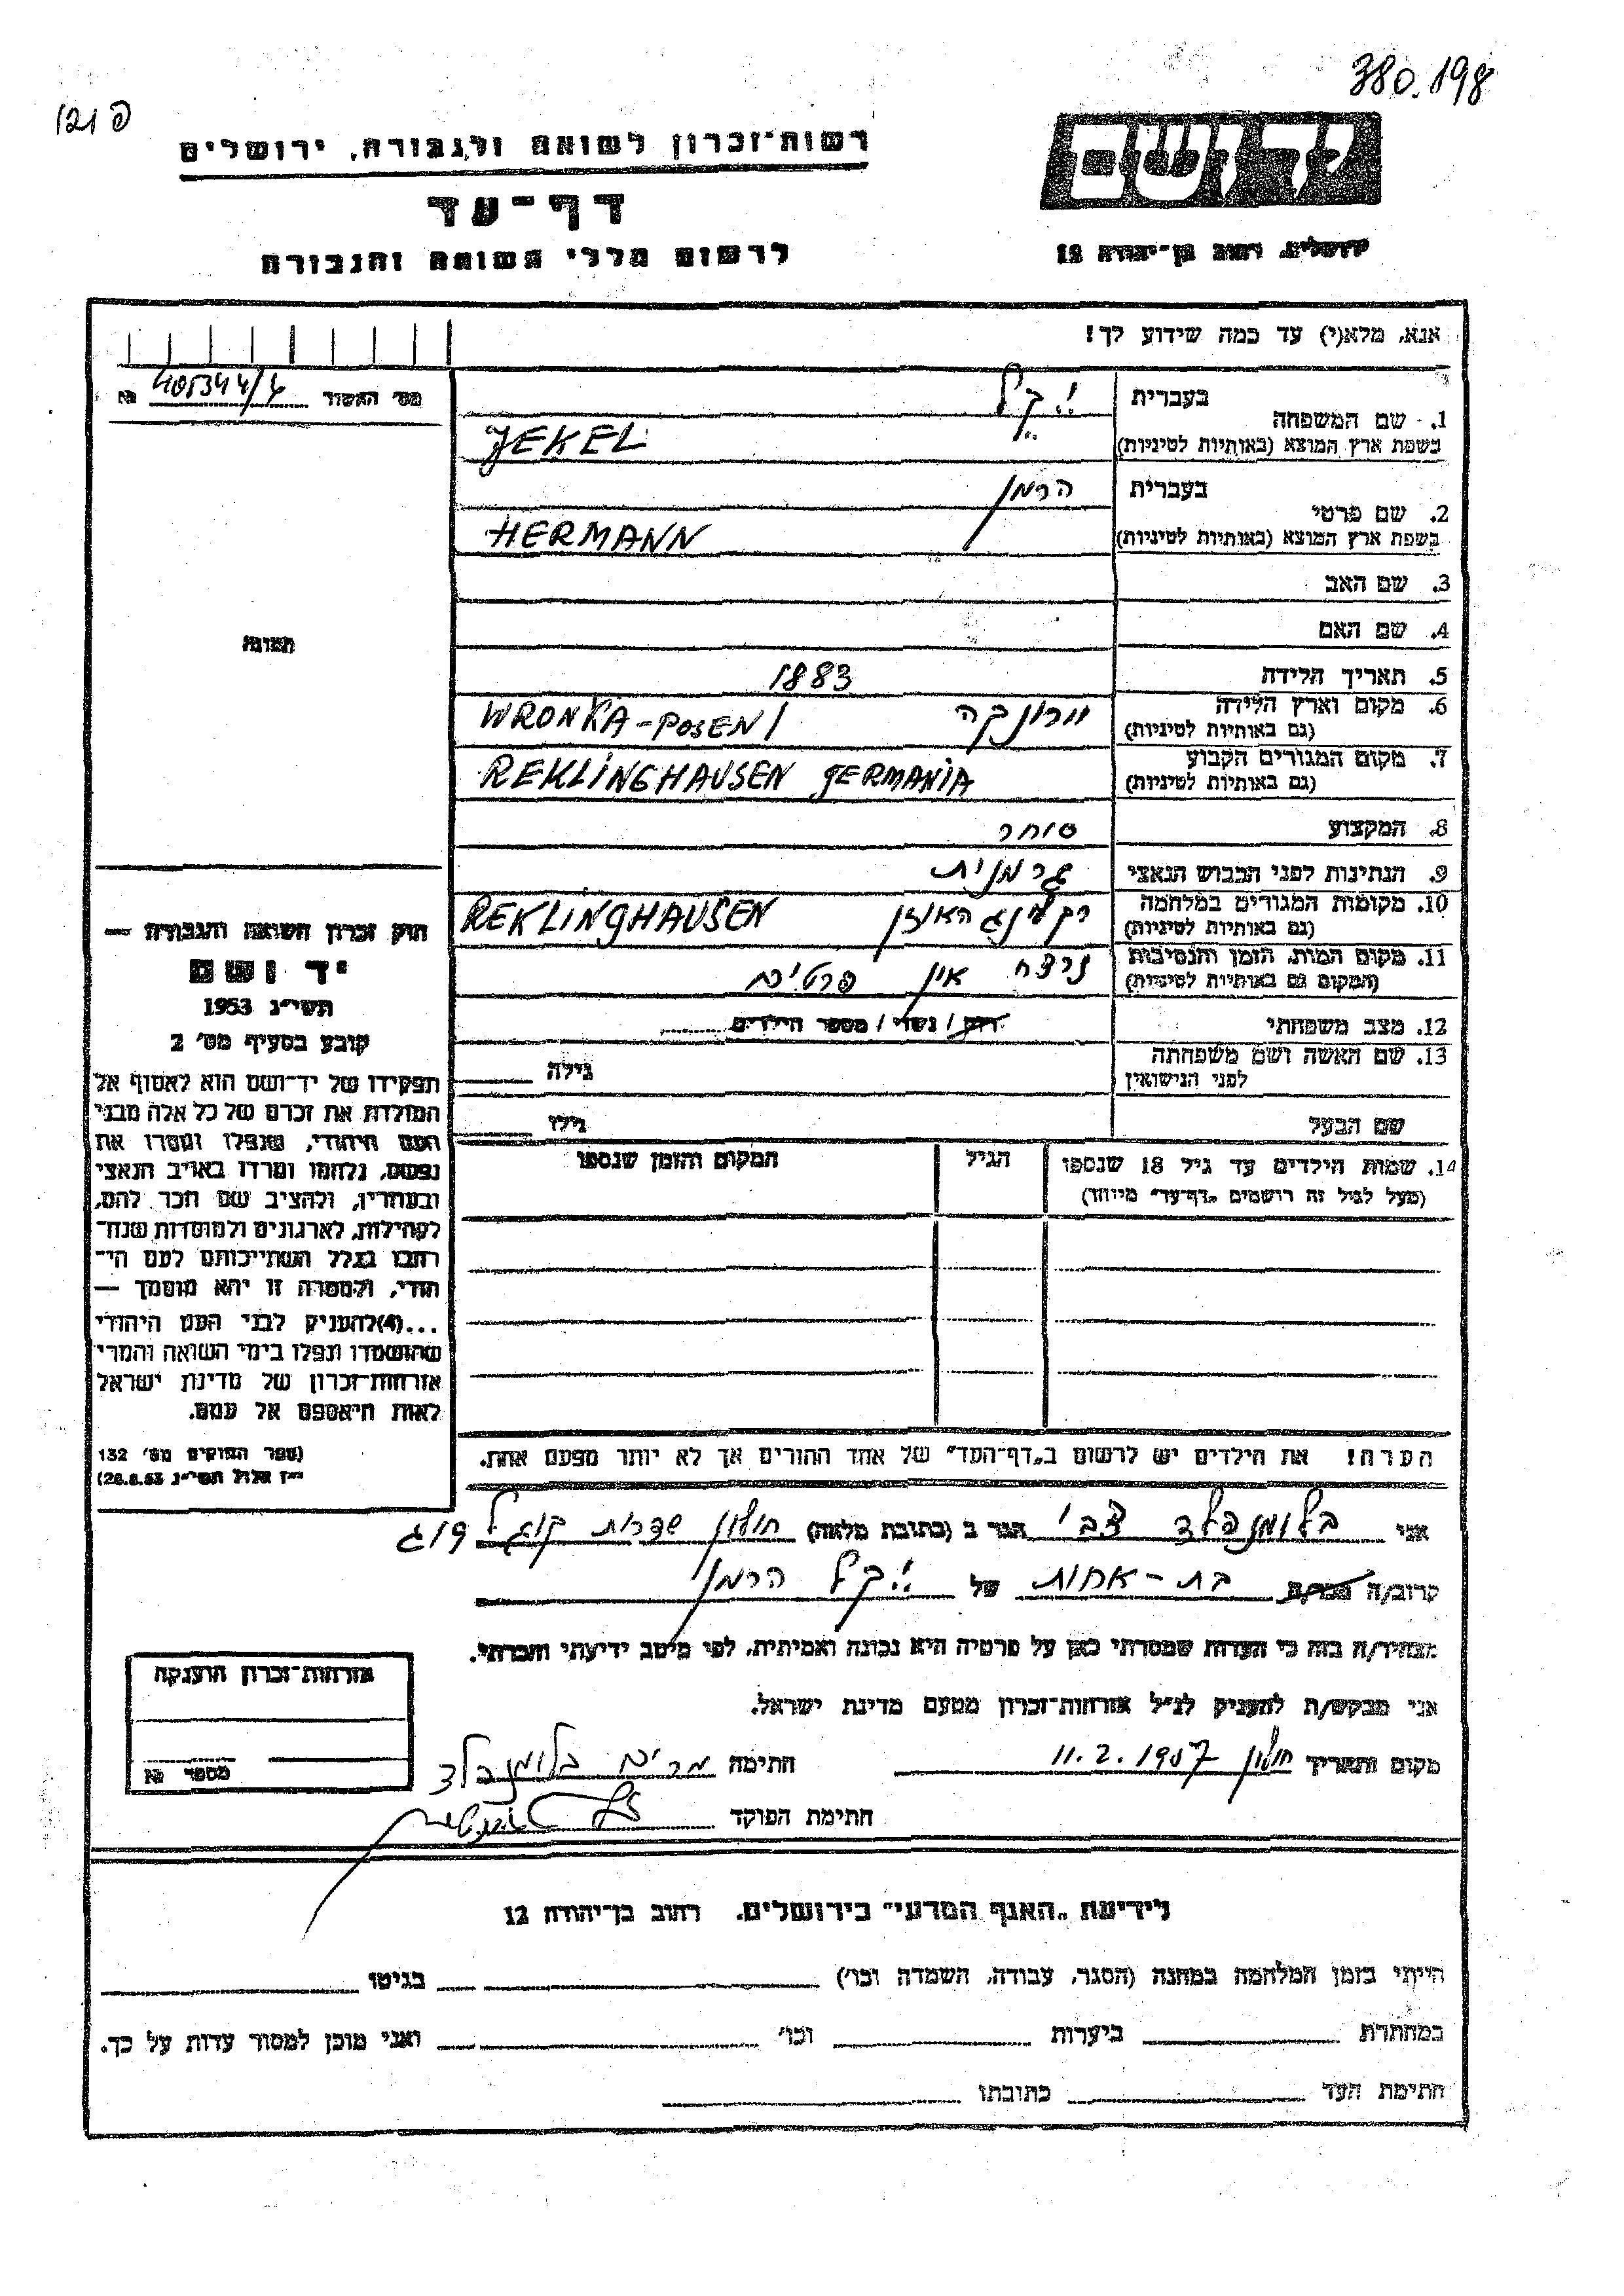 380.198
פ 121
רשות־זכרון לשואה ולגבורה, ירושלים
דף־עד
לרשום חללי השואה והגבורה
ידושם
ירושלים, רחוב בן־יהודה 12
אנא, מלא(י) עד כמה שידוע לך!
מס׳ האשור № 405344/4
תמונה
1. שם המשפחה
בעברית
בשפת ארץ המוצא (באותיות לטיניות)
יקל
JEKEL
2. שם פרטי
בעברית
בשפת ארץ המוצא (באותיות לטיניות)
הרמן
HERMANN
3. שם האב
4. שם האם
5. תאריך הלידה 1883
6. מקום וארץ הלידה
(גם באותיות לטיניות)
וורונקה WRONKA-POSEN
7. מקום המגורים הקבוע
(גם באותיות לטיניות)
REKLINGHAUSEN GERMANIA
8. המקצוע סוחר
9. הנתינות לפני הכבוש הנאצי גרמנית
10. מקומות המגורים במלחמה
(גם באותיות לטיניות)
רקלינגהאוזן REKLINGHAUSEN
11. מקום המות, הזמן והנסיבות
(המקום גם באותיות לטיניות)
נרצח אין פרטים
12. מצב משפחתי רווק / נשוי / מספר הילדים
13. שם האשה ושם משפחתה
לפני הנישואין
גילה
שם הבעל גילו
14. שמות הילדים עד גיל 18 שנספו
(מעל לגיל זה רושמים „דף־עד" מיוחד)
הגיל
המקום והזמן שנספו
הערה! את הילדים יש לרשום ב„דף־העד" של אחד ההורים אך לא יותר מפעם אחת.
חוק זכרון השואה והגבורה —
יד ושם
תשי״ג 1953
קובע בסעיף מס׳ 2
תפקידו של יד־ושם הוא לאסוף אל
המולדת את זכרם של כל אלה מבני
העם היהודי, שנפלו ומסרו את
נפשם, נלחמו ומרדו באויב הנאצי
ובעוזריו, ולהציב שם וזכר להם,
לקהילות, לארגונים ולמוסדות שנח־
רבו בגלל השתייכותם לעם הי־
הודי, ולמטרה זו יהא מוסמך —
...(4)להעניק לבני העם היהודי
שהושמדו ונפלו בימי השואה והמרי
אזרחות־זכרון של מדינת ישראל
לאות היאספם אל עמם.
(ספר החוקים מס׳ 132
י״ז אלול תשי״ג 28.8.53)
אני בלומנפלד צבי הגר ב (כתובת מלאה) חולון שדרות קוגל 9 ג
קרוב/ה מכר/ה בת-אחות של יקל הרמן
מצהיר/ה בזה כי העדות שמסרתי כאן על פרטיה היא נכונה ואמיתית, לפי מיטב ידיעתי והכרתי.
אני מבקש/ת להעניק לנ״ל אזרחות־זכרון מטעם מדינת ישראל.
מקום ותאריך חולון 11.2.1957 חתימה מרים בלומנפלד
חתימת הפוקד
אזרחות־זכרון הוענקה
מספר №
לידיעת „האגף המדעי" בירושלים, רחוב בן־יהודה 12
הייתי בזמן המלחמה במחנה (הסגר, עבודה, השמדה וכו׳) בגיטו
במחתרת ביערות וכו׳ ואני מוכן למסור עדות על כך.
חתימת העד כתובתו